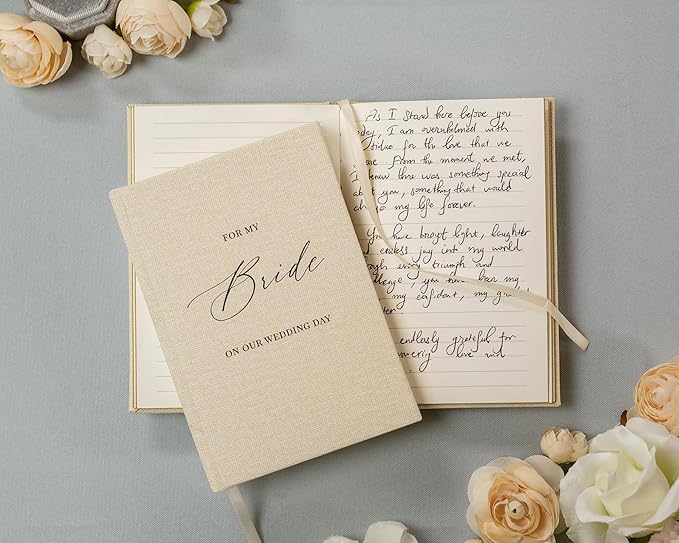 FOR MY
Bride
ON OUR WEDDING DAY
As I stand here before you
I am overwhelmed with
for the love that we
From the moment, we met,
I there was something special
you, something that would
my life forever.
You have brought light, laughter
endless joy into my world
every triumph and
you have been my
my confidant, my
endlessly grateful for
love and